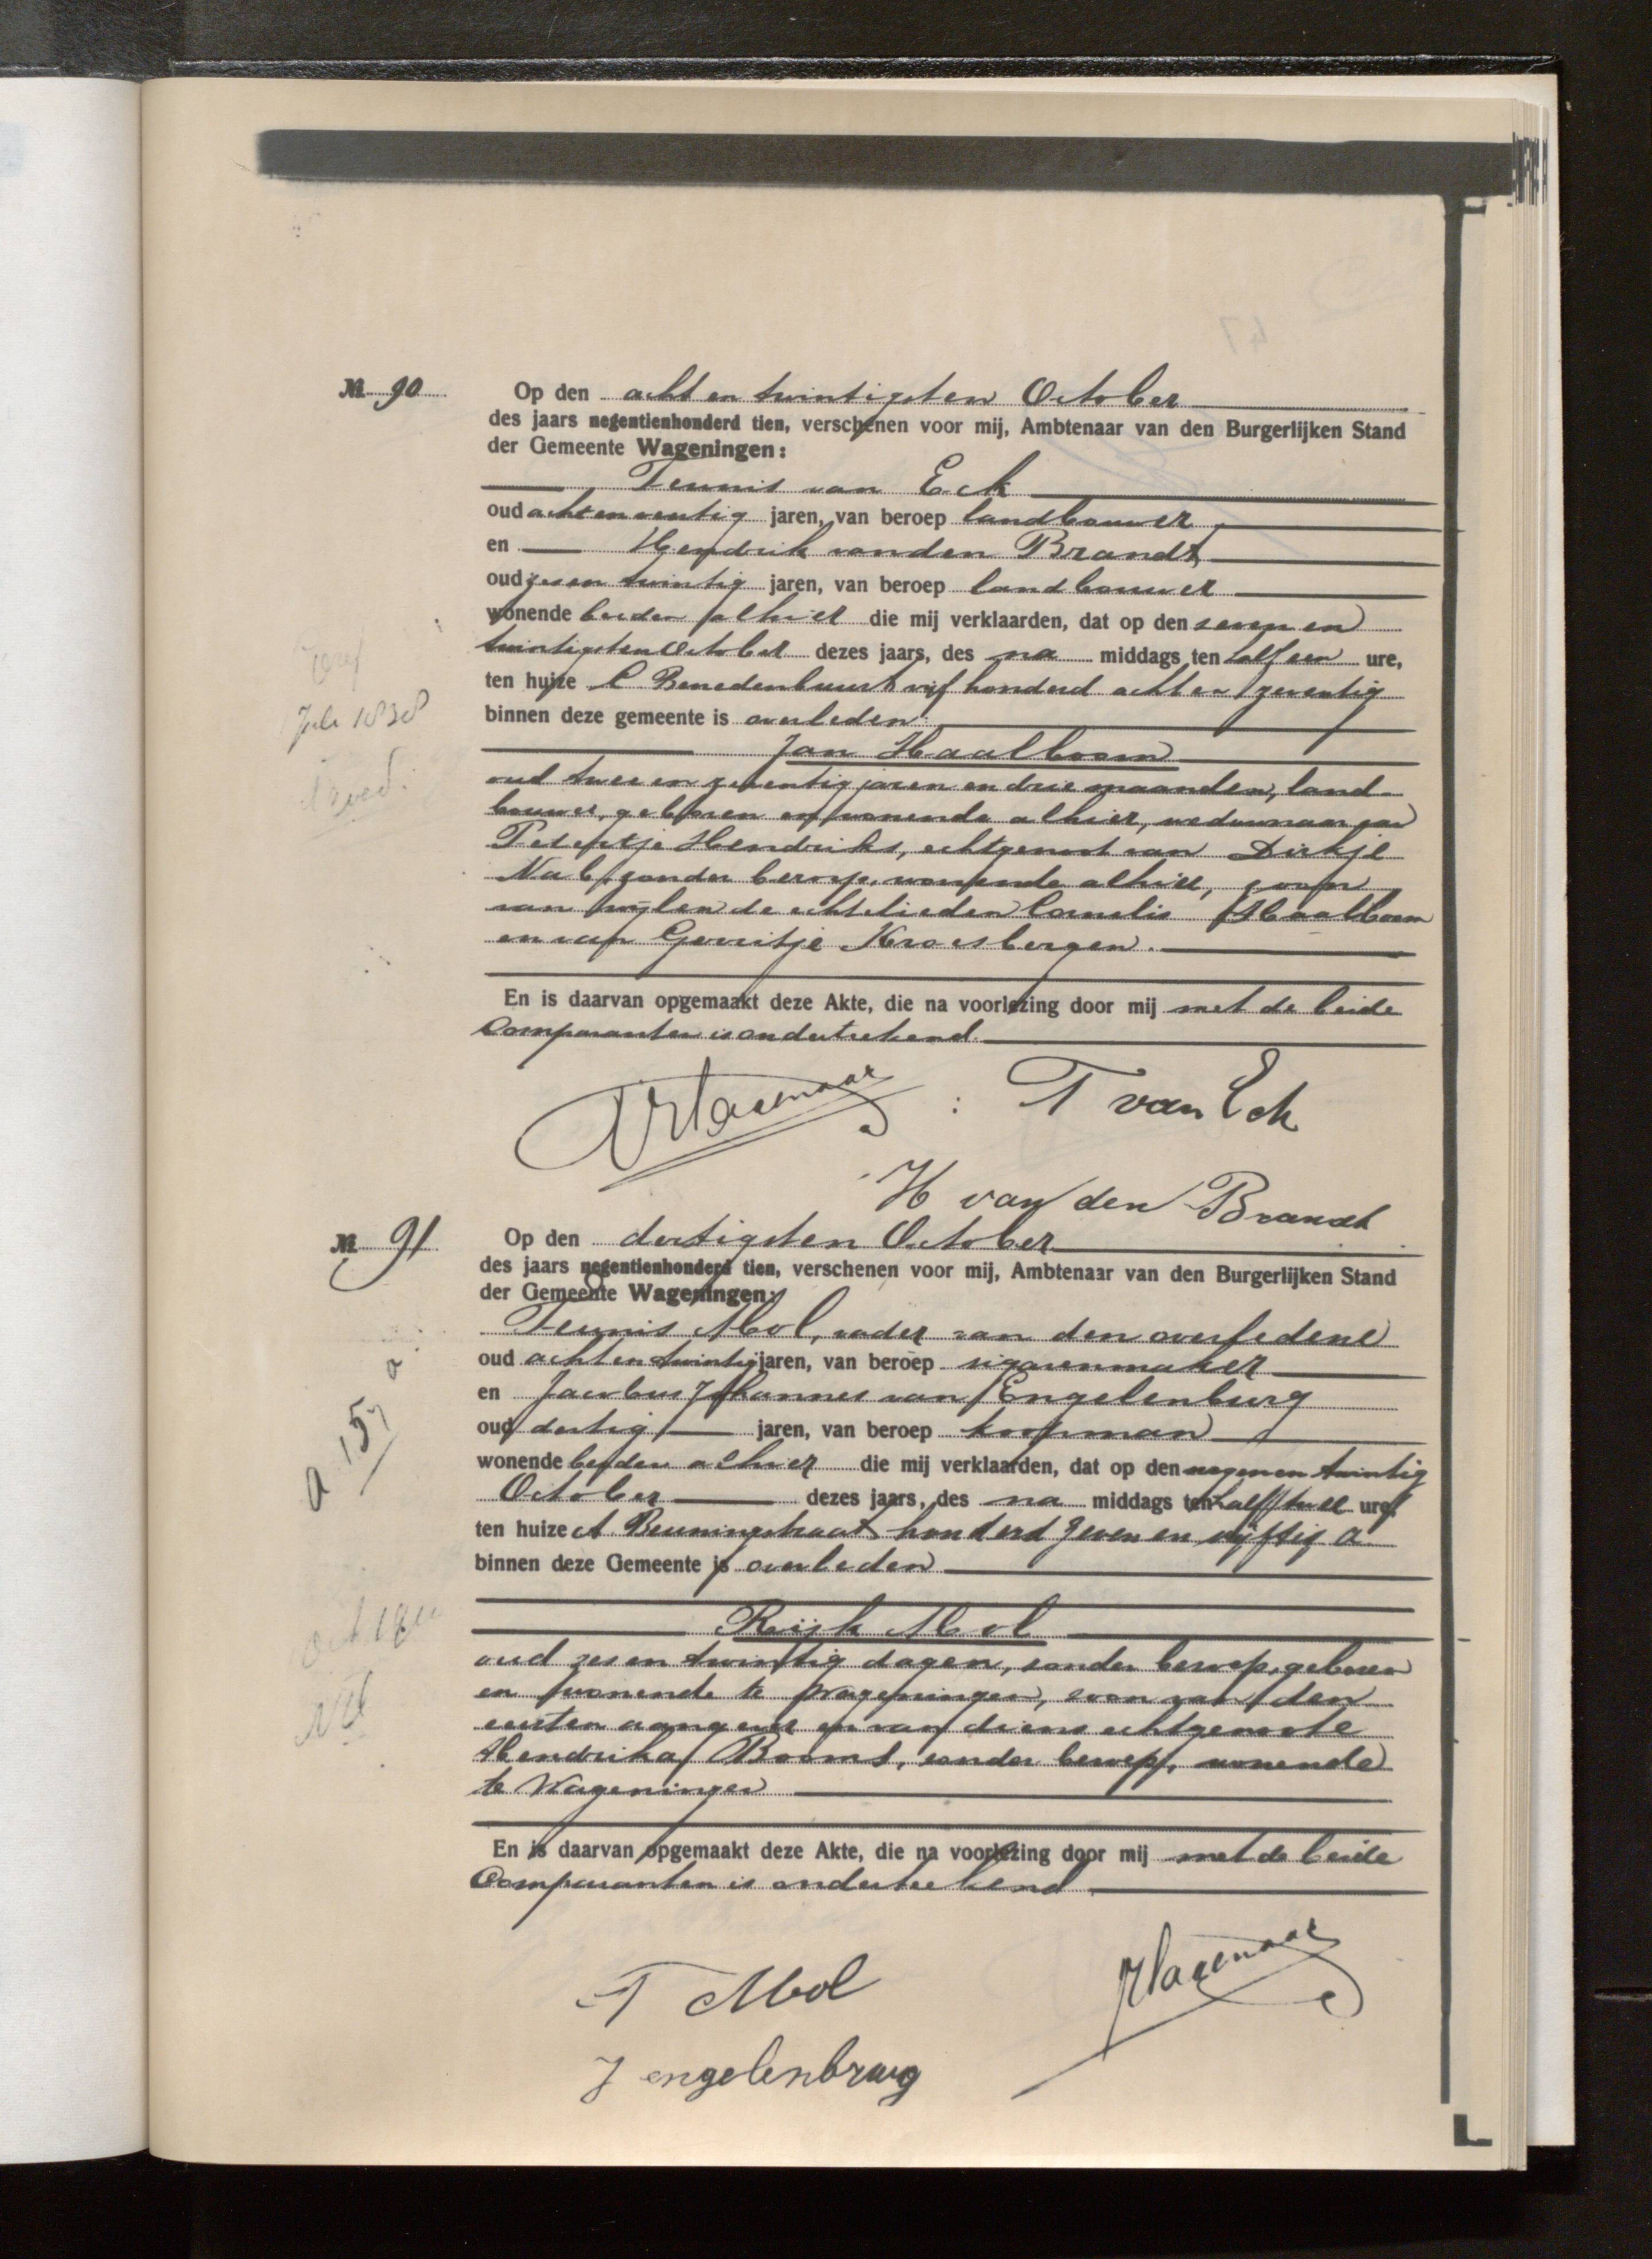 № 90
Op den acht en twintigsten October
des jaars negentienhonderd tien, verschenen voor mij, Ambtenaar van den Burgerlijken Stand
der Gemeente Wageningen:
Teunis van Eck
oud jaren, van beroep landbouwer,
en Hendrik van den Brandt,
oud zes en twintig jaren, van beroep landbouwer
wonende beiden alhier die mij verklaarden, dat op den zeven en
twintigsten October dezes jaars, des na middags ten half een ure,
ten huize C Benedenbuurt vijf honderd acht en zeventig
binnen deze gemeente is overleden:
Jan Haalboom
oud twee en zeventig jaren en drie maanden, land-
bouwer, geboren en wonende alhier, weduwnaar van
Petertje Hendriks, echtgenoot van Dirkje
zonder beroep, wonende alhier, zoon
van wijlen de echtelieden Cornelis Haalboom
en van Gerritje Kroesbergen.
En is daarvan opgemaakt deze Akte, die na voorlezing door mij met de beide
Comparanten is onderteekend.
Hagenaar
T van Eck
H van den Brandt
Juli 1838
№ 91
Op den dertigsten October
des jaars negentienhonderd tien, verschenen voor mij, Ambtenaar van den Burgerlijken Stand
der Gemeente Wageningen:
Teunis Mol, vader van den overledene
oud acht en twintig jaren, van beroep sigarenmaker
en Jacobus Johannes van Engelenburg
oud dertig jaren, van beroep koopman
wonende beiden alhier die mij verklaarden, dat op den negen en twintig
October dezes jaars, des na middags ten half twee ure,
ten huize A Beuningstraat honderd zeven en vijftig a
binnen deze Gemeente is overleden
Rijk Mol
oud zes en twintig dagen, zonder beroep, geboren
en wonende te Wageningen, zoon van den
eersten aangever en van diens echtgenoote
Hendrika Booms, zonder beroep, wonende
te Wageningen
En is daarvan opgemaakt deze Akte, die na voorlezing door mij met de beide
Comparanten is onderteekend
T Mol
Hagenaar
J engelenbrug
a 157 a